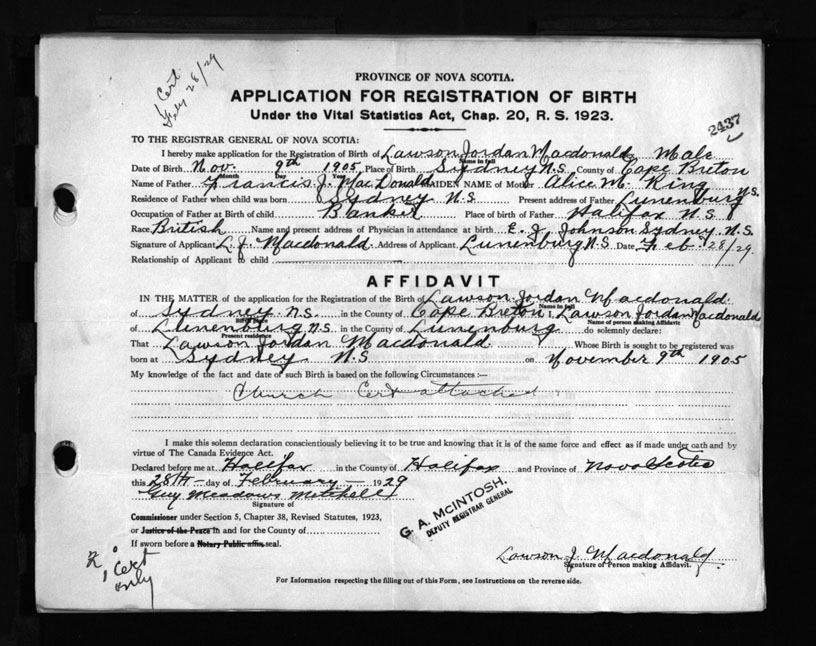 1 Cert.
Feb 28/29
PROVINCE OF NOVA SCOTIA.
APPLICATION FOR REGISTRATION OF BIRTH
Under the Vital Statistics Act, Chap. 20, R. S. 1923.
2437
TO THE REGISTRAR GENERAL OF NOVA SCOTIA:
I hereby make application for the Registration of Birth of Lawson Jordan Macdonald Male
Name in full
Date of Birth Nov. 9th 1905 Place of Birth Sydney N.S. County of Cape Breton
Month Day Year
Name of Father Francis J. MacDonald MAIDEN NAME of Mother Alice M. King
Residence of Father when child was born Sydney N.S. Present address of Father Lunenburg N.S.
Occupation of Father at Birth of child Banker Place of birth of Father Halifax N.S.
Race British Name and present address of Physician in attendance at birth E. J. Johnson Sydney N.S.
Signature of Applicant L. J. Macdonald. Address of Applicant. Lunenburg N.S. Date Feb. 28/29.
Relationship of Applicant to child
AFFIDAVIT
IN THE MATTER of the application for the Registration of the Birth of Lawson Jordan Macdonald.
Name in full
of Sydney N.S. in the County of Cape Breton I, Lawson Jordan Macdonald
Name of person making Affidavit
of Lunenburg N.S. in the County of Lunenburg do solemnly declare:
Present residence
That Lawson Jordan Macdonald Whose Birth is sought to be registered was
born at Sydney N.S on November 9th 1905
My knowledge of the fact and date of such Birth is based on the following Circumstances :-
Church Cert attached
I make this solemn declaration conscientiously believing it to be true and knowing that it is of the same force and effect as if made under oath and by
virtue of The Canada Evidence Act.
Declared before me at Halifax in the County of Halifax and Province of Nova Scotia
this 28th day of February 1929
Guy Meadows Mitchell
Signature of
Commissioner under Section 5, Chapter 38, Revised Statutes, 1923,
or Justice of the Peace in and for the County of
If sworn before a Notary Public affix seal.
G. A. McINTOSH,
DEPUTY REGISTRAR GENERAL
Lawson J. Macdonald.
Signature of Person making Affidavit.
1 Cert
only
For Information respecting the filling out of this Form, see Instructions on the reverse side.